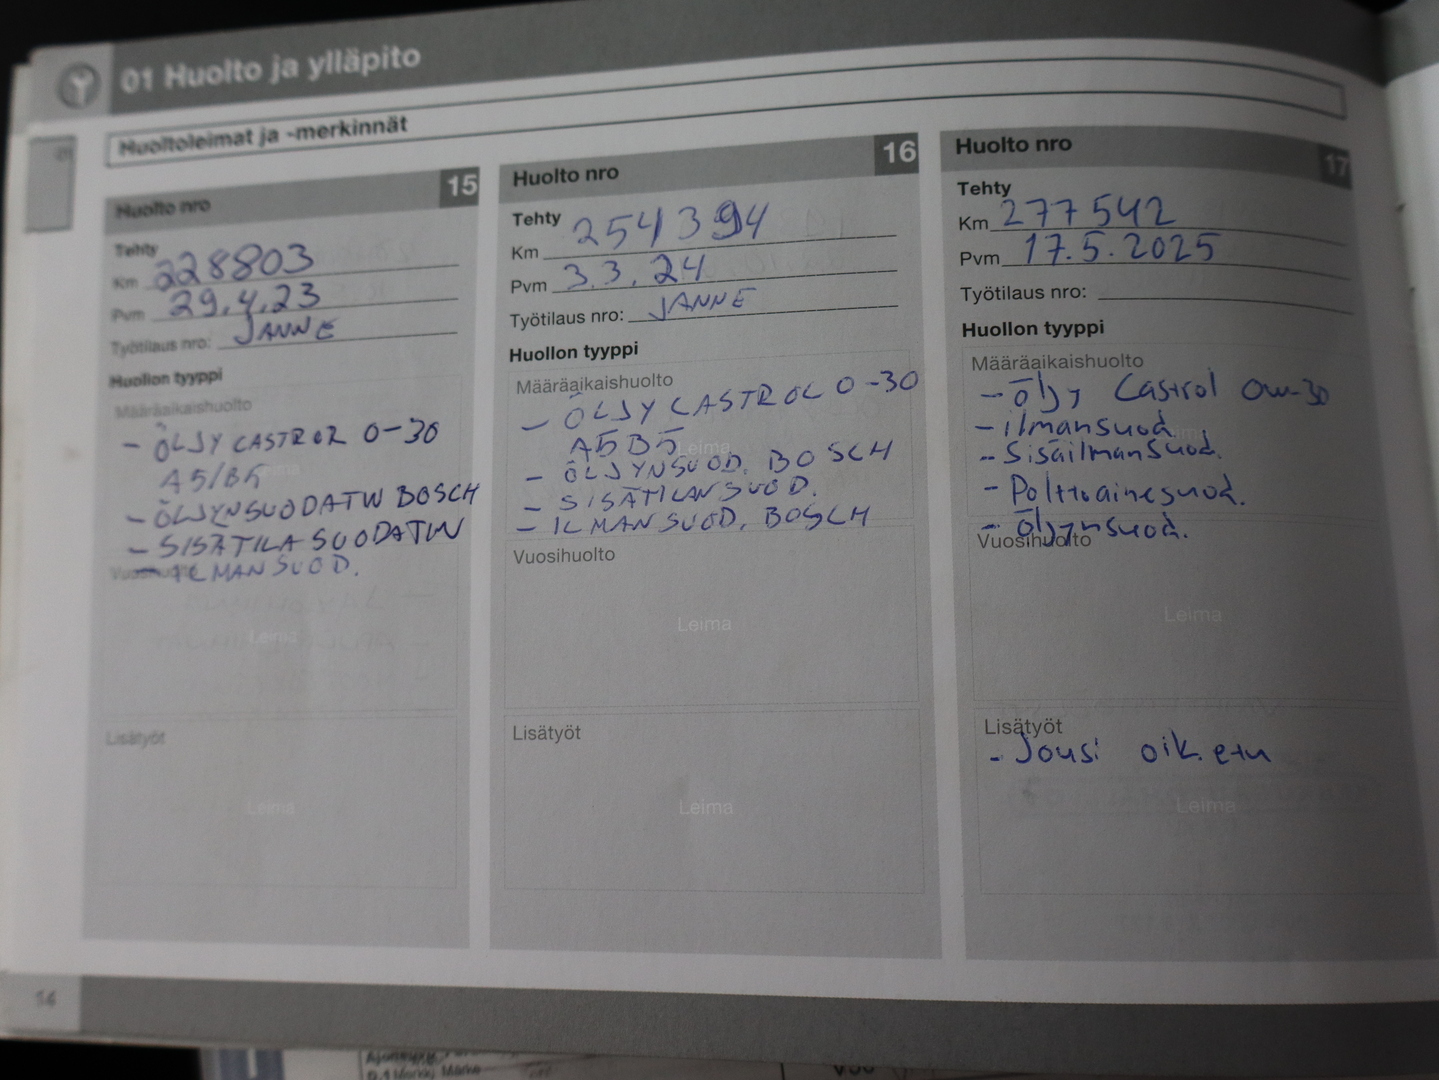 01 Huolto ja ylläpito
Huoltoleimat ja -merkinnät
Huolto nro 15
Tehty
Km 228803
Pvm 29.4.23
Työtilaus nro: JANNE
Huollon tyyppi
Määräaikaishuolto
- ÖLJY CASTROL 0-30
A5/B5
- ÖLJYNSUODATIN BOSCH
- SISÄTILA SUODATIN
- ILMANSUOD.
Vuosihuolto
Leima
Lisätyöt
Leima
Huolto nro 16
Tehty
Km 254394
Pvm 3.3.24
Työtilaus nro: JANNE
Huollon tyyppi
Määräaikaishuolto
- ÖLJY CASTROL 0-30
A5B5
Leima
- ÖLJYNSUOD. BOSCH
- SISÄTILANSUOD.
- ILMANSUOD. BOSCH
Vuosihuolto
Leima
Lisätyöt
Leima
Huolto nro 17
Tehty
Km 277542
Pvm 17.5.2025
Työtilaus nro:
Huollon tyyppi
Määräaikaishuolto
- Öljy Castrol 0w-30
- ilmansuod.
- Sisäilmansuod.
- Polttoainesuod.
- Öljynsuod.
Vuosihuolto
Leima
Lisätyöt
- Jousi oik. etu
Leima
14